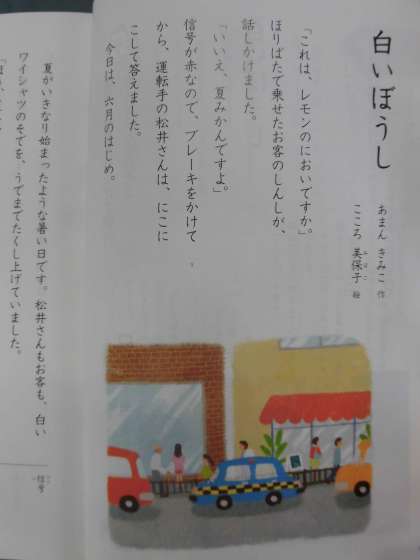 白いぼうし
あまん きみこ 作
こころ 美保子 絵
みほこ
「これは、レモンのにおいですか。」
ほりばたで乗せたお客のしんしが、
話しかけました。
「いいえ、夏みかんですよ。」
信号が赤なので、ブレーキをかけて
から、運転手の松井さんは、にこに
こして答えました。
今日は、六月のはじめ。
夏がいきなり始まったような暑い日です。松井さんもお客も、白い
ワイシャツのそでを、うでまでたくし上げていました。
信号